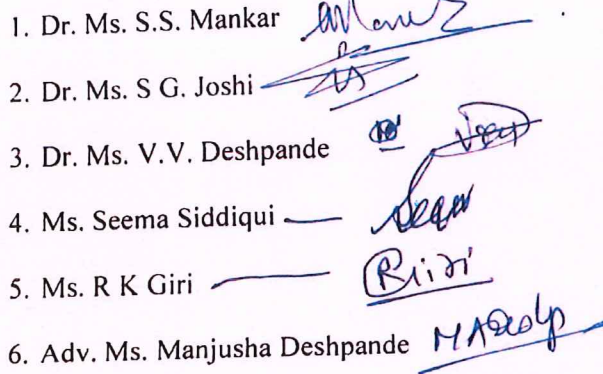 1. Dr. Ms. S.S. Mankar
2. Dr. Ms. S G. Joshi
3. Dr. Ms. V.V. Deshpande
4. Ms. Seema Siddiqui
5. Ms. R K Giri
6. Adv. Ms. Manjusha Deshpande